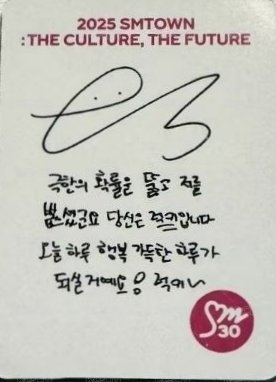 2025 SMTOWN
: THE CULTURE, THE FUTURE
극한의 확률을 뚫고 저를
뽑으셨군요 당신은 럭키입니다
오늘 하루 행복 가득한 하루가
되실 거예요 럭키
SM
30